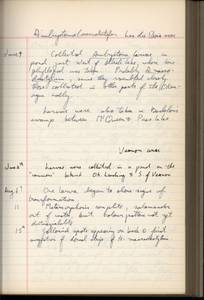 Ambystoma (macrodactylum) Lac du Bois area
June 9 Collected Ambystoma larvae in
pond, just west of Black lake, where
phyllopod was taken. Probably A. macro-
dactylum, since they resembled closely
those collected in other parts of the
valley.
Larvae were also taken in
swamps between McQueen & Pass lake
Vernon area
larvae were collected in a pond in the
"commons" behind Ok. Landing & S. of Vernon
Aug 1 One larva began to show signs of
transformation
11 Metamorphosis complete, salamander
out of water but colour pattern not yet
distinguishable
15 Yellowish spots appearing on back & first
suggestion of dorsal stripe of A. macrodactylum